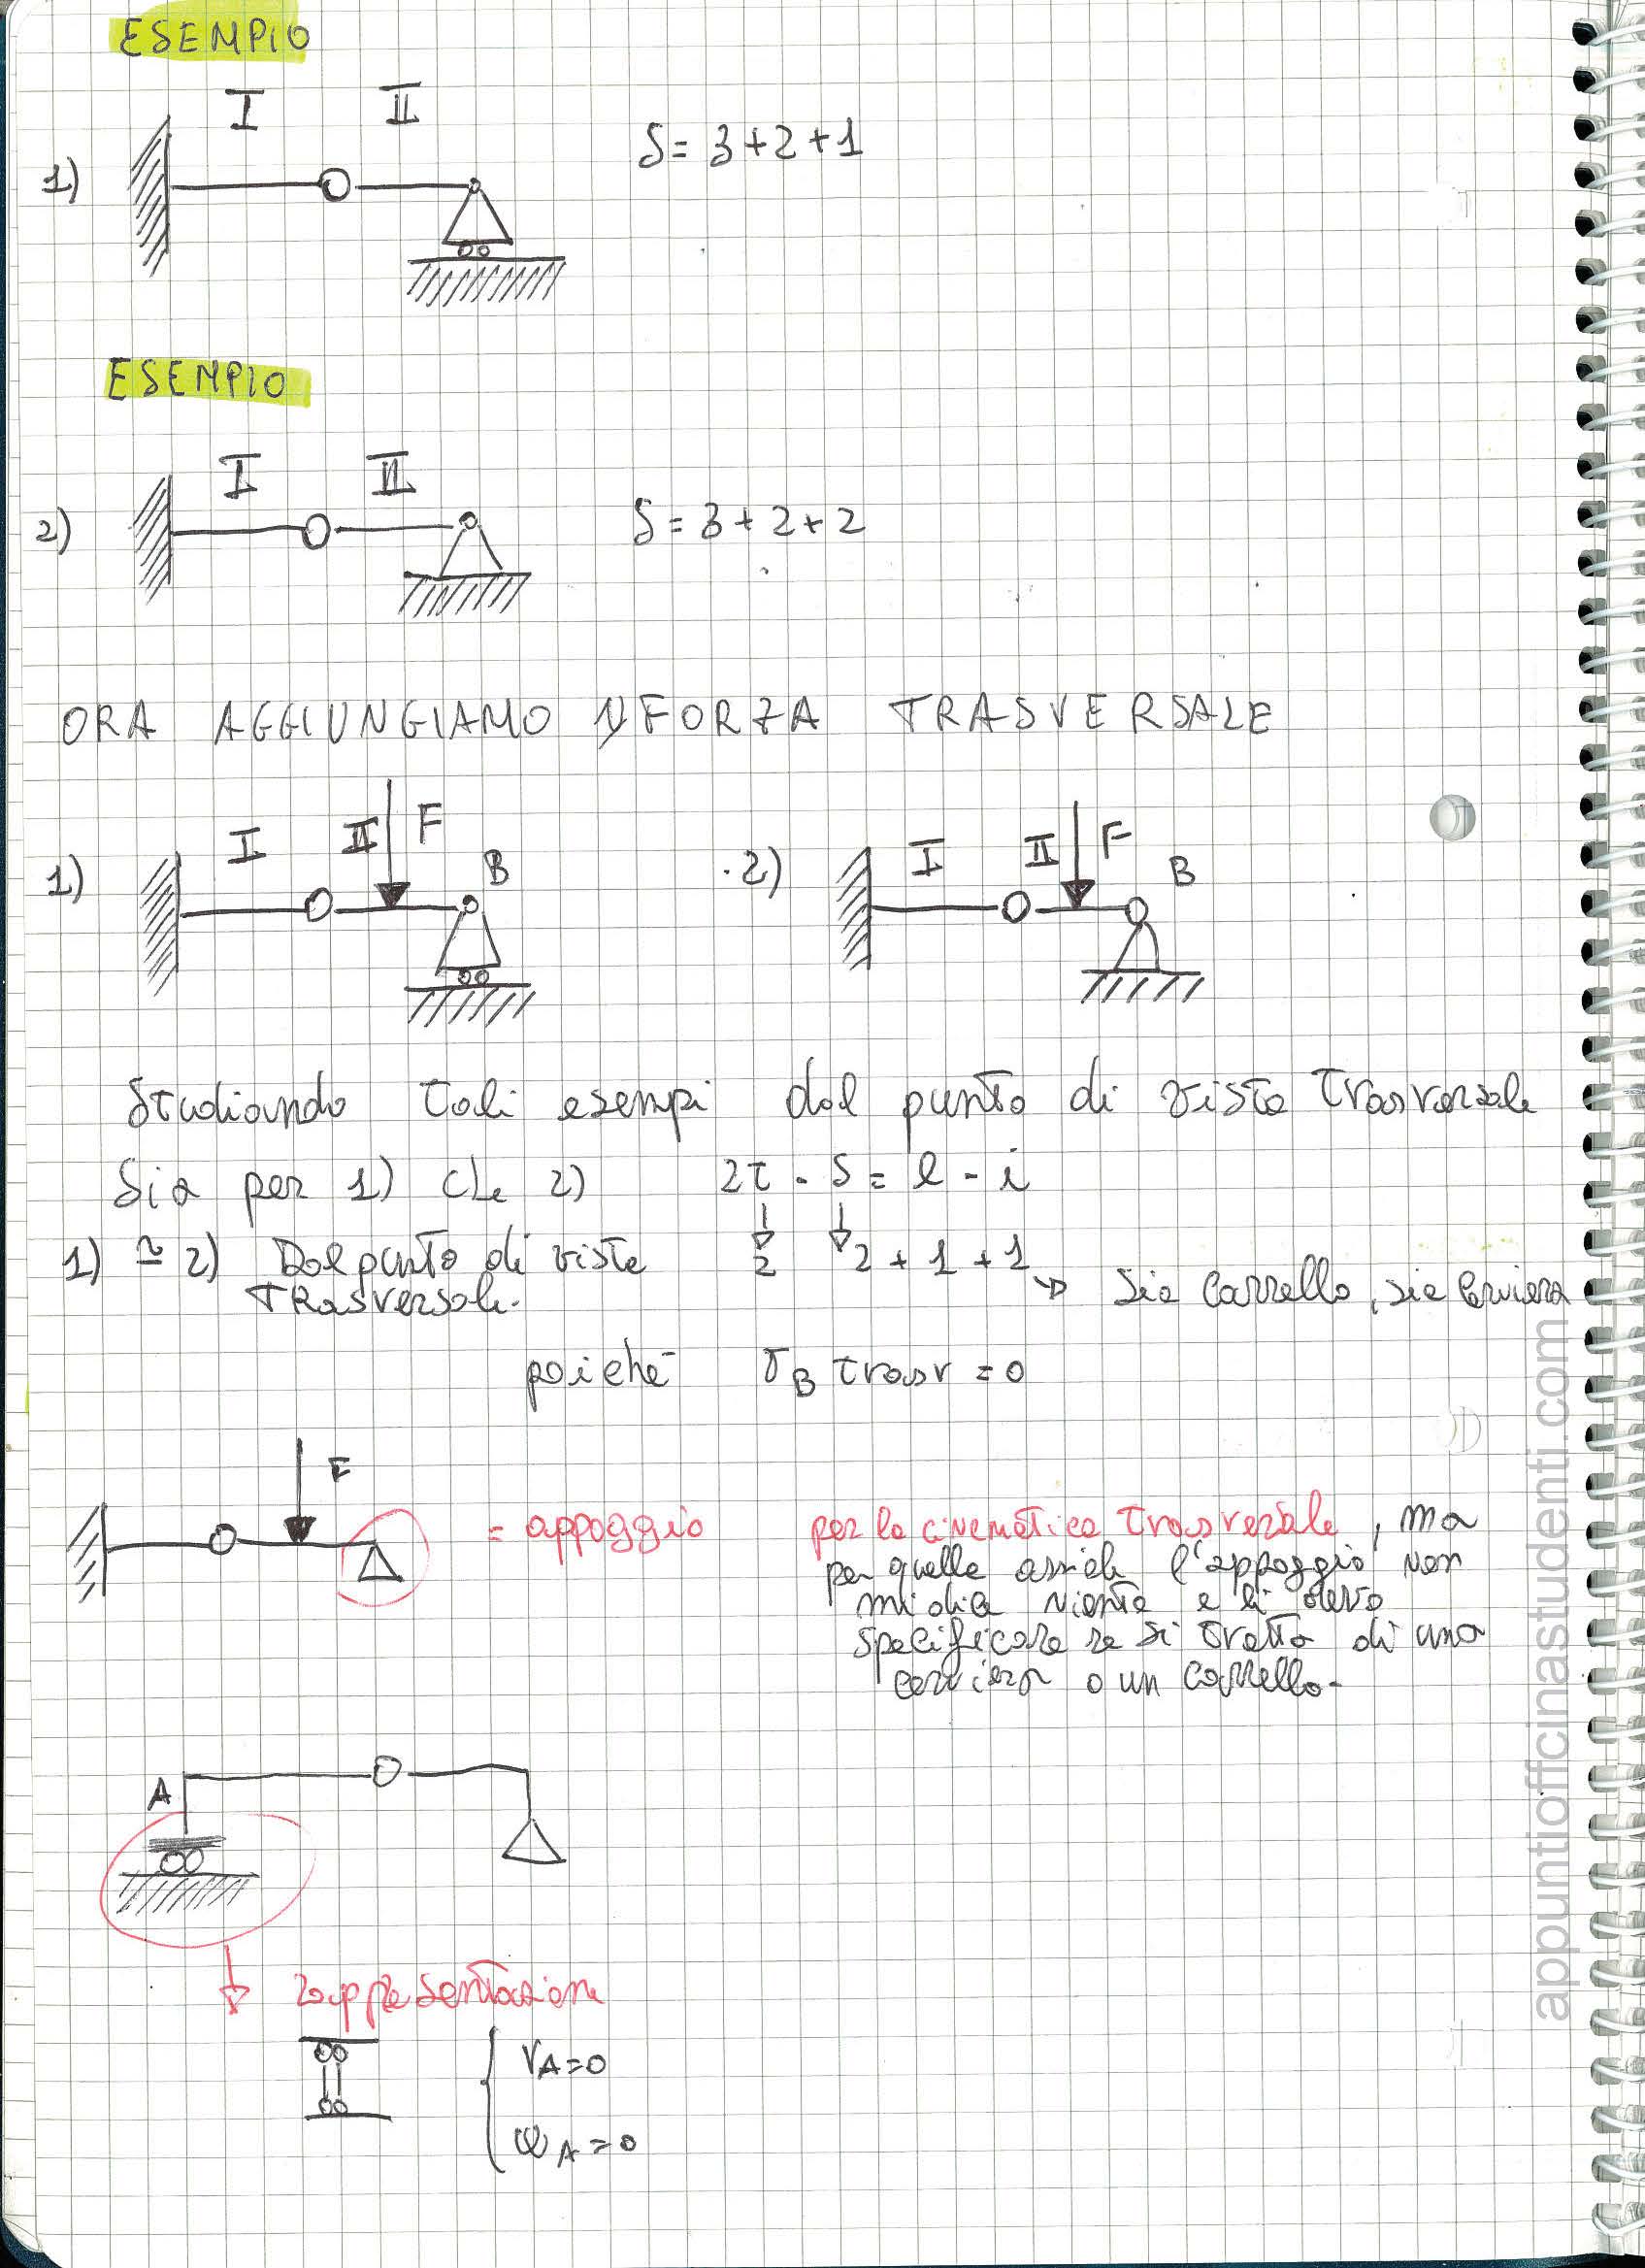 ESEMPIO
I II
1) S = 3+2+1
ESEMPIO
I II
2) S = 3+2+2
ORA AGGIUNGIAMO FORZA TRASVERSALE
1) I II F B
2) I II F B
Studiando tali esempi dal punto di vista trasversale
Sia per 1) che 2) 2τ - S = l - i
1) ≃ 2) Dal punto di vista 2 2+1+1
trasversale. Sia carrello, sia cerniera
poiché B trasv = 0
F
= appoggio per la cinematica trasversale, ma
per quella assiale l'appoggio non
mi dice niente e li devo
specificare se si tratta di una
cerniera o un carrello.
A
rappresentazione
VA=0
φA=0
appuntiofficinastudenti.com